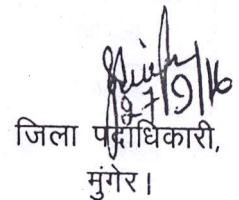 27/9/16
जिला पदाधिकारी,
मुंगेर।